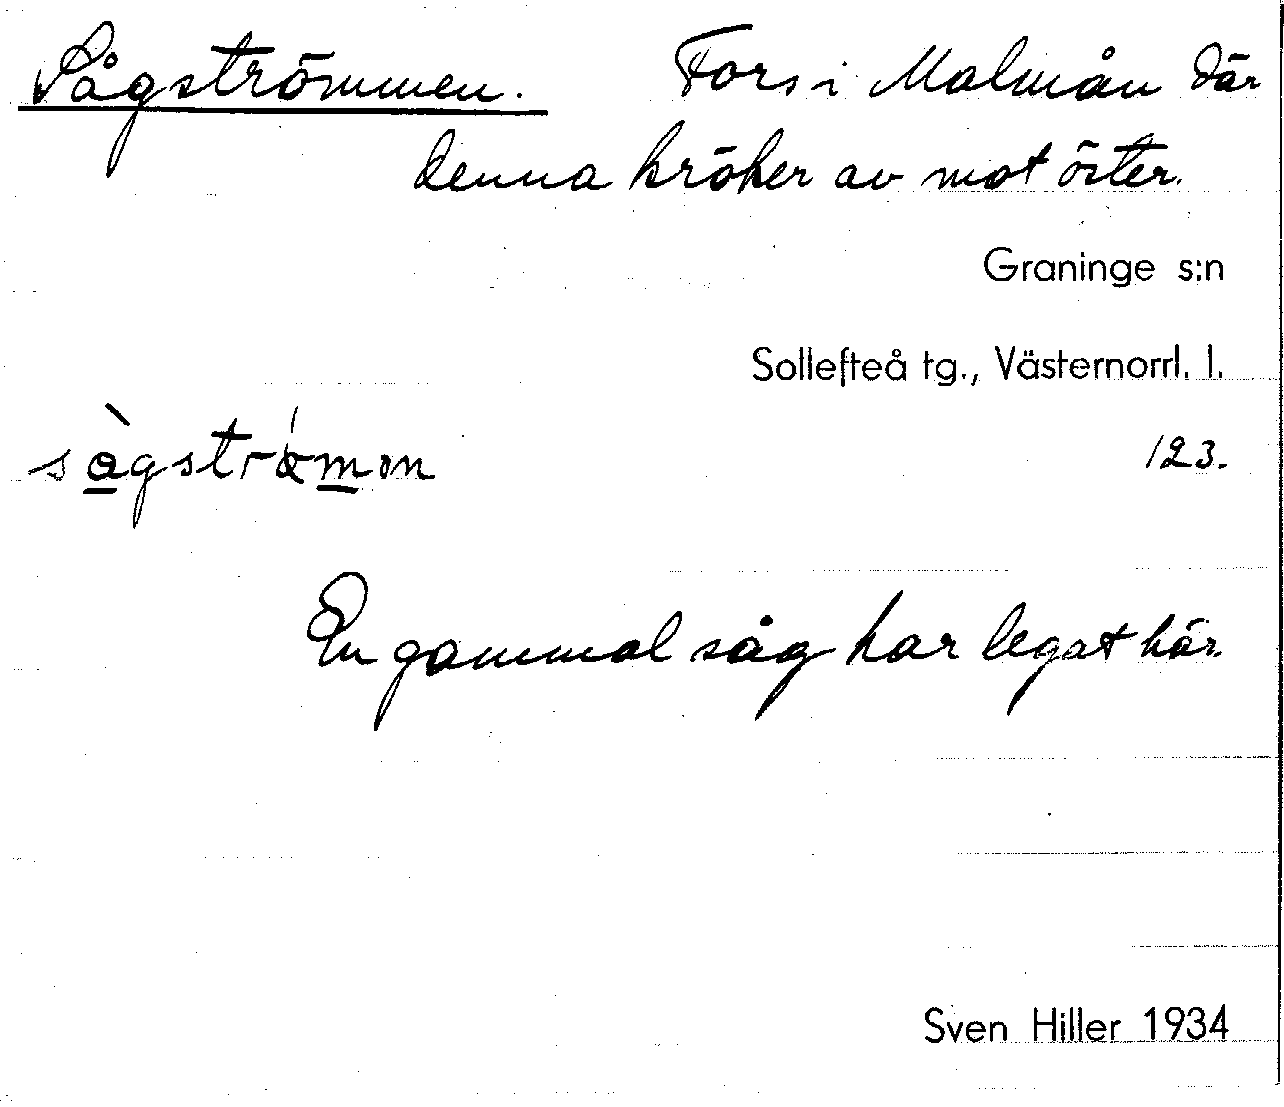 Sågströmmen. Fors i Malmån där
denna kröker av mot öster.
Graninge s:n
Sollefteå tg., Västernorrl. l.
123.
En gammal såg har legat här.
Sven Hiller 1934